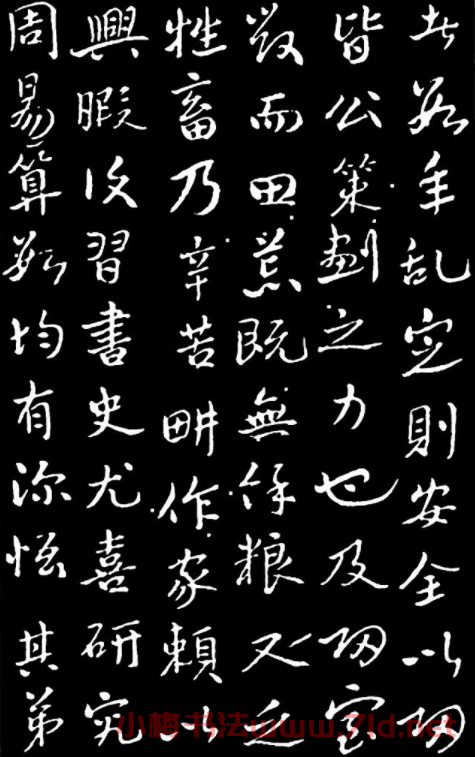 者數年乱定則安全以归
皆公策劃之力也及归室
毀而田荒既無餘粮又乏
牲畜乃辛苦畊作家賴以
興暇復習書史尤喜研究
周易算數均有深悟其弟
小梅书法www.7ld.net